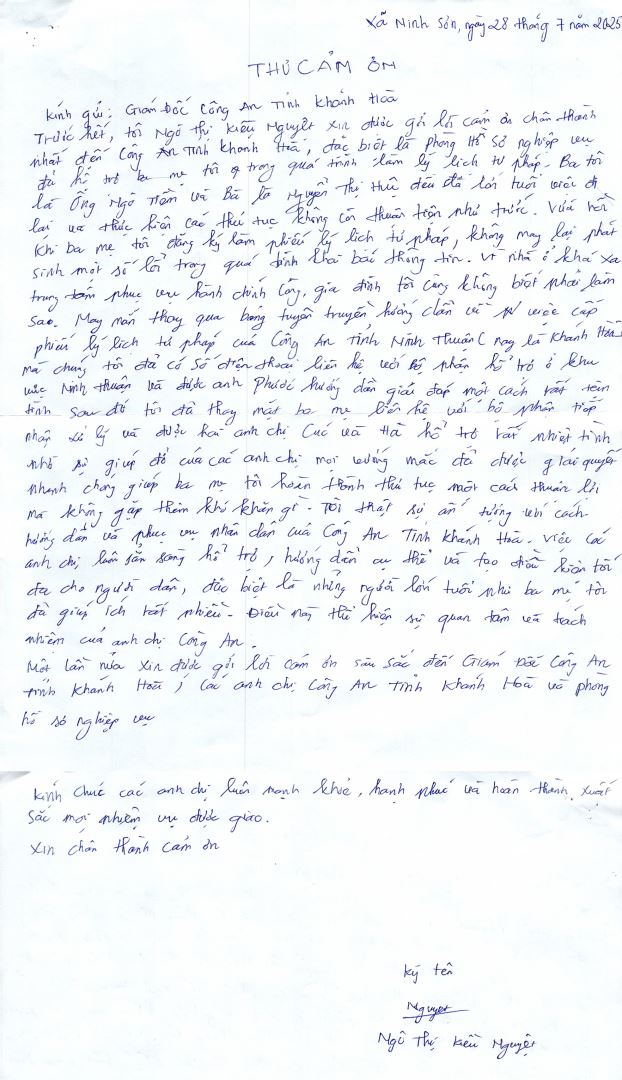 Xã Ninh Sơn, ngày 28 tháng 7 năm 2025
THƯ CẢM ƠN
Kính gửi: Giám Đốc Công An Tỉnh Khánh Hoà
Trước hết, tôi Ngô Thị Kiều Nguyệt xin được gửi lời cảm ơn chân thành
nhất đến Công An Tỉnh Khánh Hoà, đặc biệt là phòng Hồ Sơ nghiệp vụ
đã hỗ trợ ba mẹ tôi trong quá trình làm lý lịch tư pháp. Ba tôi
là Ông Ngô Tiềm và Bà là Nguyễn Thị Huệ đều đã lớn tuổi việc đi
lại và thực hiện các thủ tục không còn thuận tiện như trước. Vừa rồi
khi ba mẹ tôi đăng ký làm phiếu lý lịch tư pháp, không may lại phát
sinh một số lỗi trong quá trình khai báo thông tin. Vì nhà ở khá xa
trung tâm phục vụ hành chính công, gia đình tôi cũng không biết phải làm
sao. May mắn thay qua bảng tuyên truyền, hướng dẫn về sự việc cấp
phiếu lý lịch tư pháp của Công An Tỉnh Ninh Thuận ( nay là Khánh Hoà
mà chúng tôi đã có số điện thoại liên hệ với bộ phận hỗ trợ ở khu
vực Ninh Thuận và được anh Phước hướng dẫn giải đáp một cách rất tận
tình sau đó tôi đã thay mặt ba mẹ liên hệ với bộ phận tiếp
nhận xử lý và được hai anh chị Cúc và Hà hỗ trợ rất nhiệt tình
nhờ sự giúp đỡ của các anh chị mọi vướng mắc đã được giải quyết
nhanh chóng giúp ba mẹ tôi hoàn thành thủ tục một cách thuận lợi
mà không gặp thêm khó khăn gì. Tôi thật sự ấn tượng với cách
hướng dẫn và phục vụ nhân dân của Công An Tỉnh Khánh Hoà. Việc các
anh chị luôn sẵn sàng hỗ trợ, hướng dẫn cụ thể và tạo điều kiện tối
đa cho người dân, đặc biệt là những người lớn tuổi như ba mẹ tôi
đã giúp ích rất nhiều. Điều này thể hiện sự quan tâm và trách
nhiệm của anh chị Công An.
Một lần nữa xin được gửi lời cảm ơn sâu sắc đến Giám Đốc Công An
Tỉnh Khánh Hoà, các anh chị Công An Tỉnh Khánh Hoà và phòng
hồ sơ nghiệp vụ
Kính chúc các anh chị luôn mạnh khoẻ, hạnh phúc và hoàn thành xuất
sắc mọi nhiệm vụ được giao.
Xin chân thành cảm ơn
Ký tên
Nguyệt
Ngô Thị Kiều Nguyệt